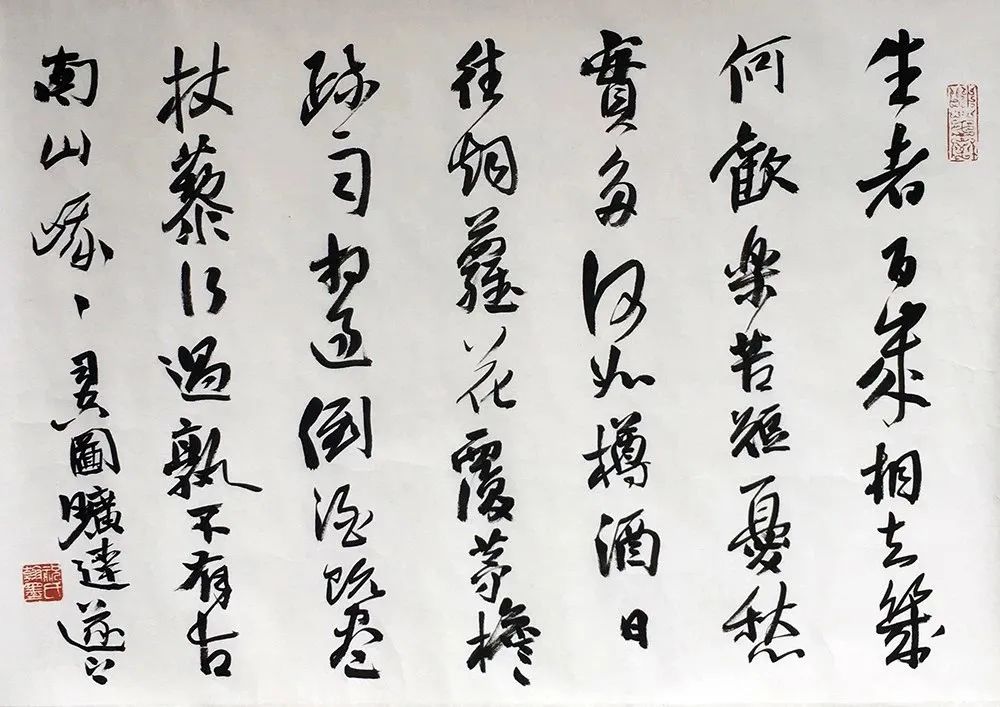 生者百歲相去幾
何歡樂苦短憂愁
實多何如樽酒日
往烟蘿花覆茅檐
疎雨相過倒酒既盡
杖藜行過孰不有古
南山峨〻司空圖曠達